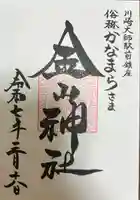 川崎大師駅前鎮座
俗称かなまらさま
金山神社
令和七年三月十六日